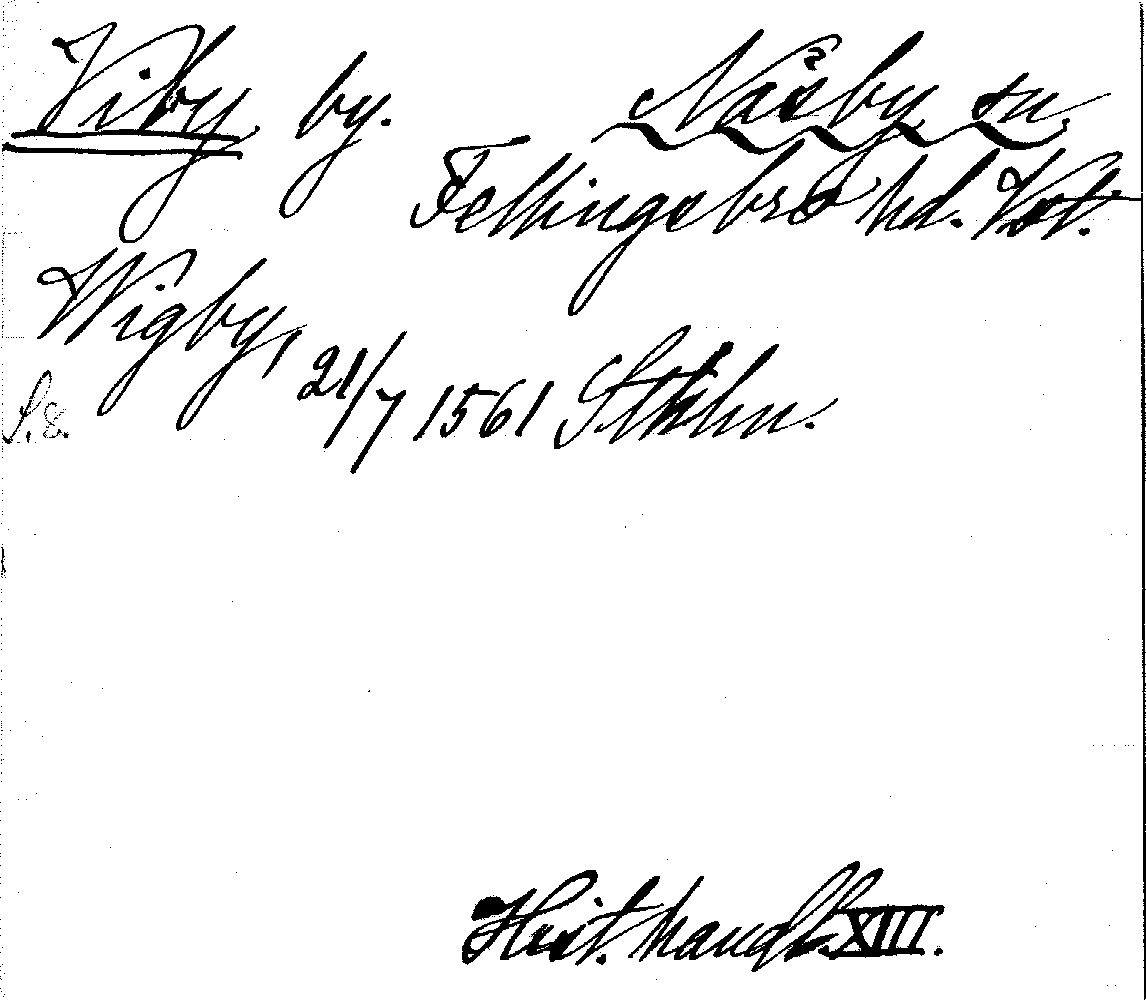 Viby by. Näsby sn.
Fellingsbro hd. Vstl.
Wigby, 21/7 1561 Sthlm.
S. 8.
Hist. handl. XIII.